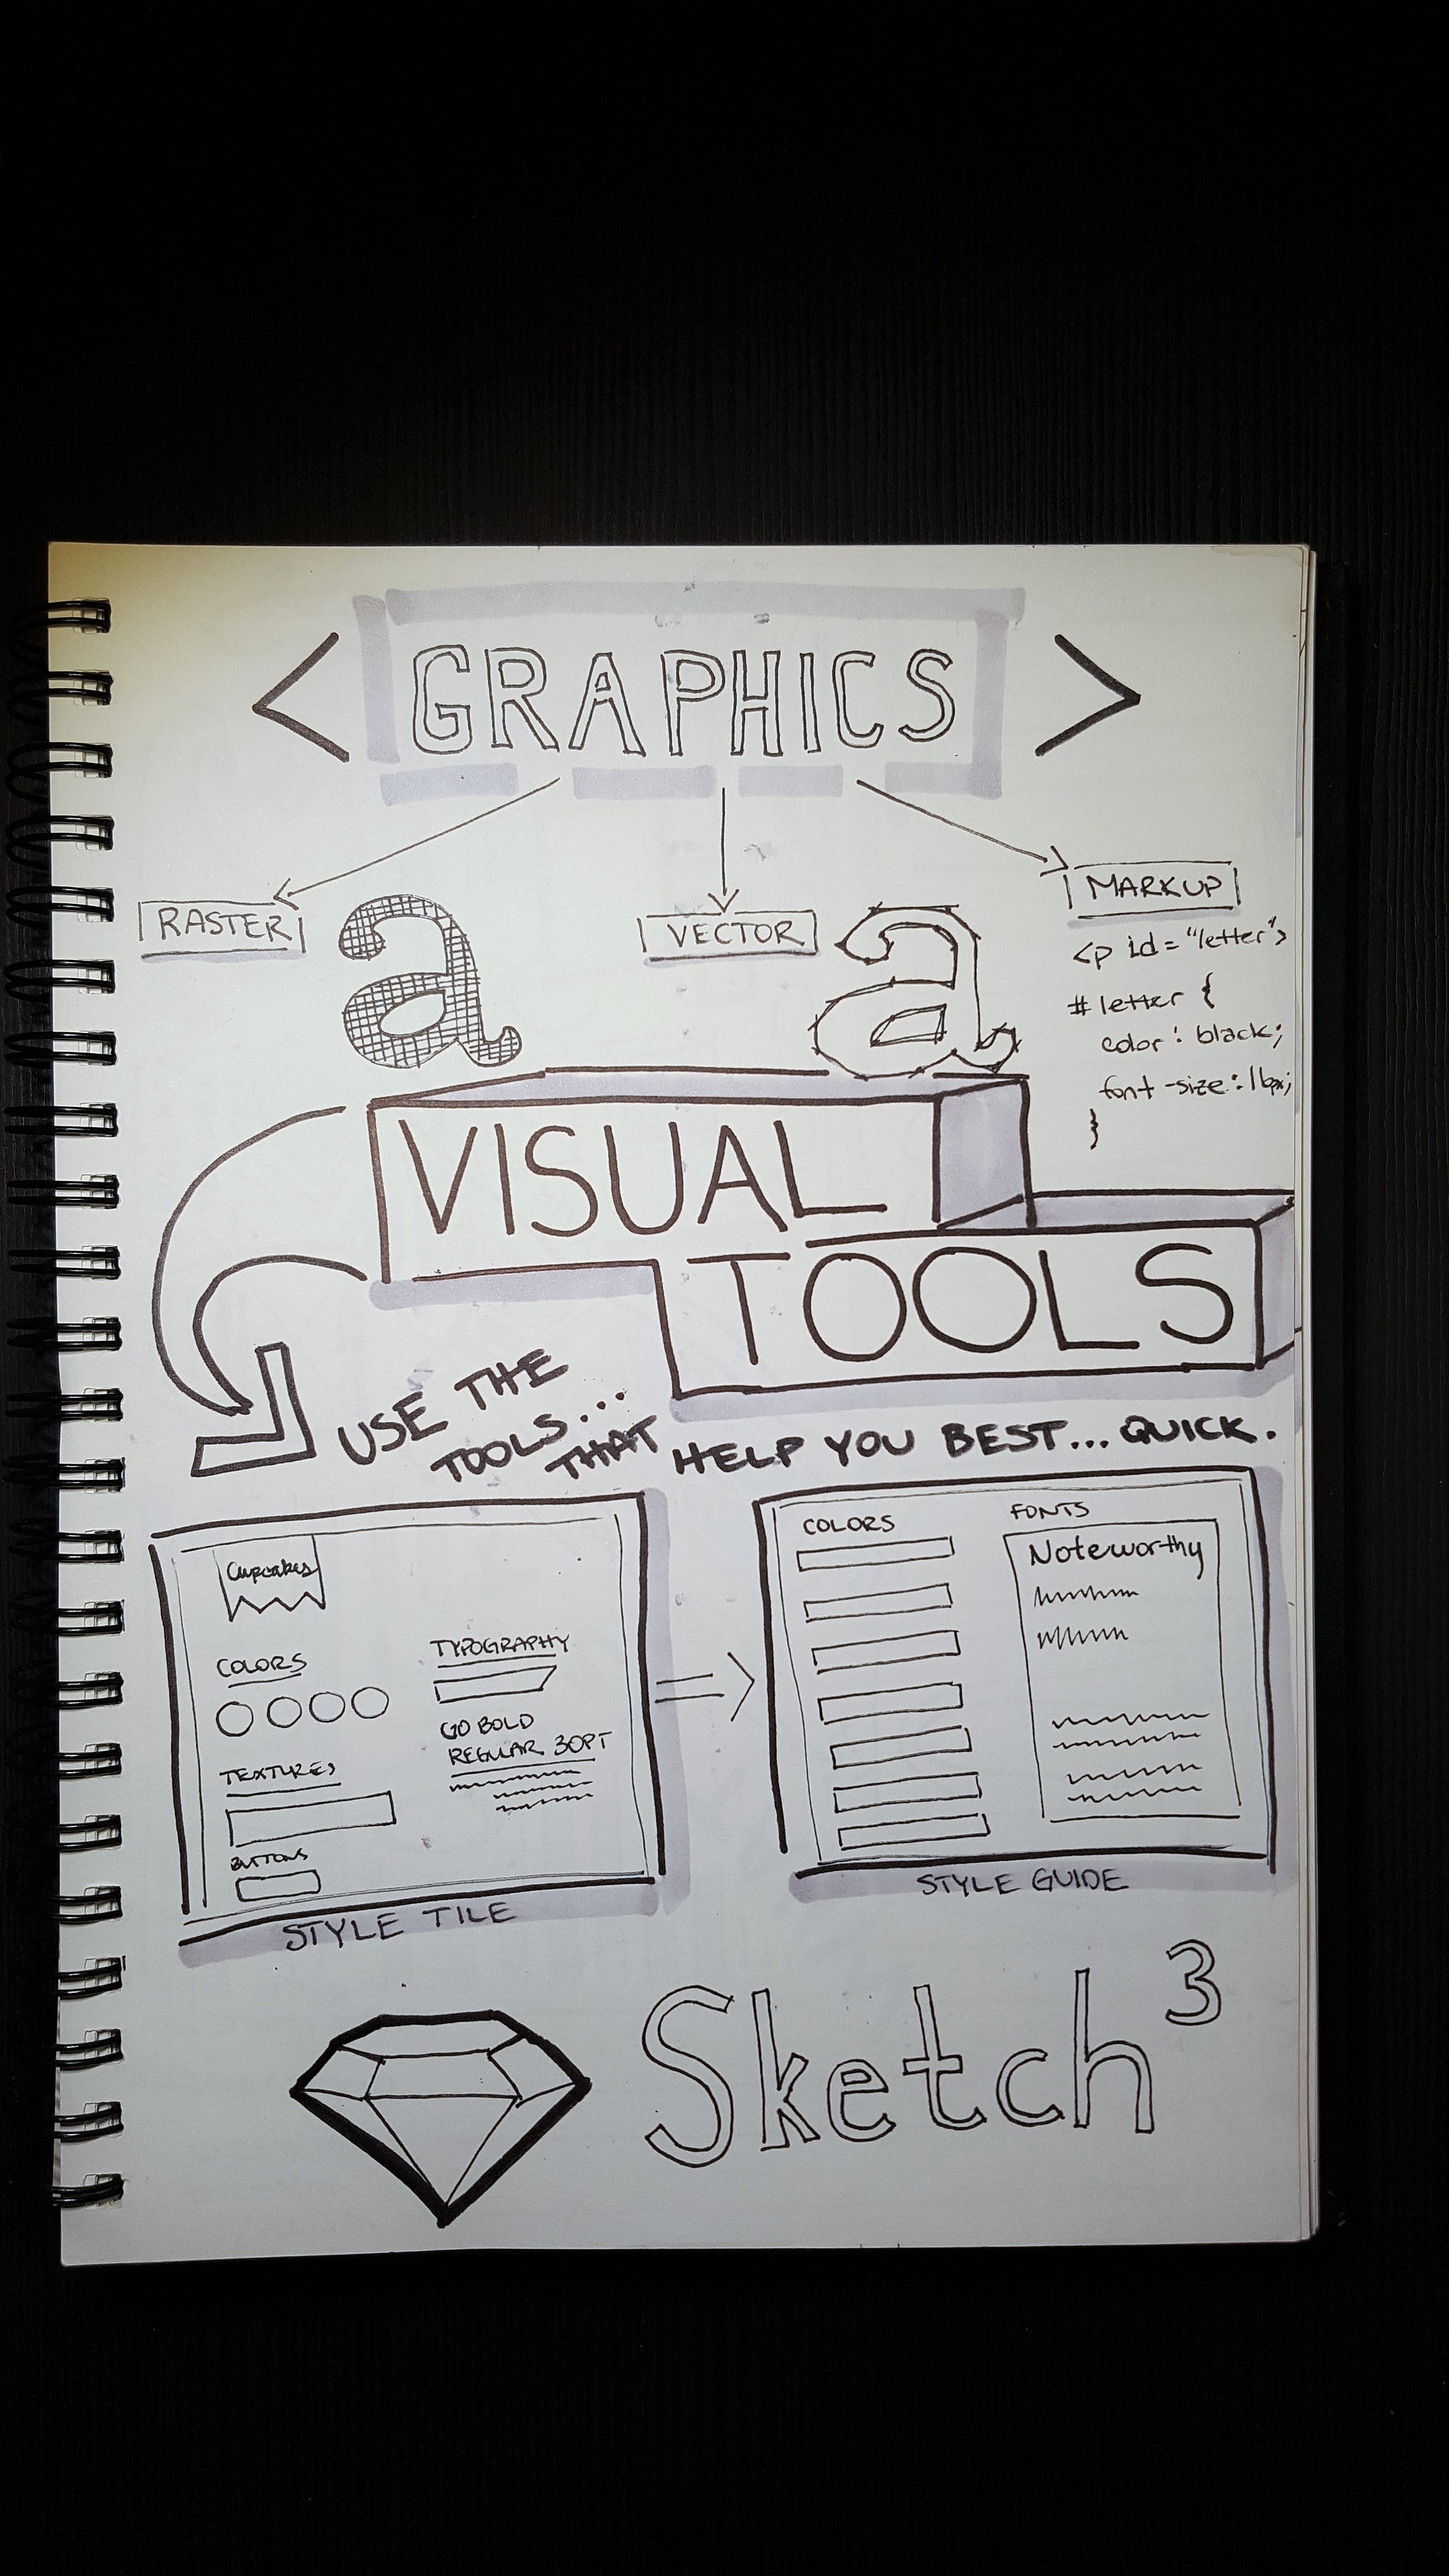 < GRAPHICS >
RASTER
a
VECTOR
a
MARKUP
<p id="letter">
#letter {
color: black;
font-size: 16px;
}
VISUAL
TOOLS
USE THE
TOOLS...
THAT HELP YOU BEST... QUICK.
Cupcakes
COLORS
TEXTURES
BUTTONS
TYPOGRAPHY
GO BOLD
REGULAR 30PT
STYLE TILE
=>
COLORS
FONTS
Noteworthy
STYLE GUIDE
Sketch 3